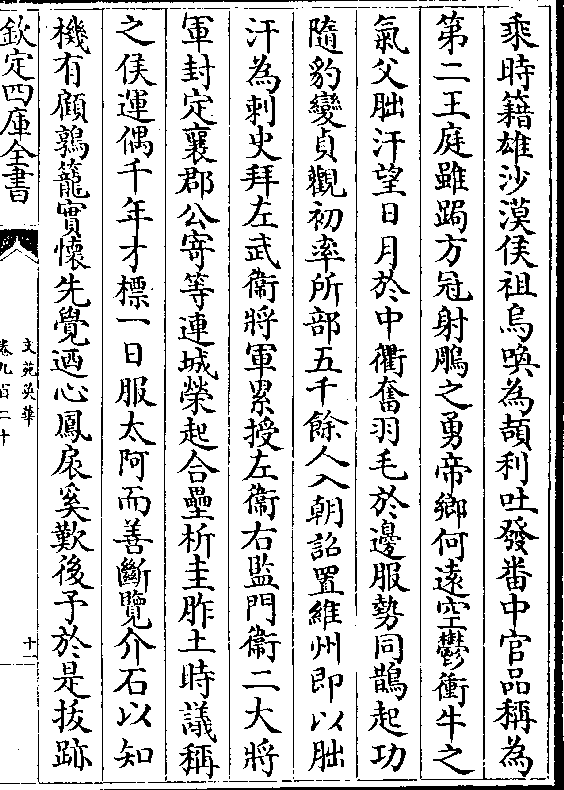 乘時籍雄沙漠侯祖烏喚為頡利吐發畨中官品稱為
第二王庭雖跼方冠射鵰之勇帝鄉何遠空鬱衝牛之
氣父朏汗望日月於中衢奮羽毛於邊服勢同鵲起功
隨豹變貞觀初率所部五千餘人入朝詔置維州即以朏
汗為刺史拜左武衞將軍累授左衞右監門衞二大將
軍封定襄郡公寄等連城榮起合壘析圭胙土時議稱
之侯運偶千年才標一日服太阿而善斷覽介石以知
機有顧鶉籠實懷先覺廼心鳳扆奚歎後予於是抜跡
欽定四庫全書
文苑英華
卷九百二十
十一